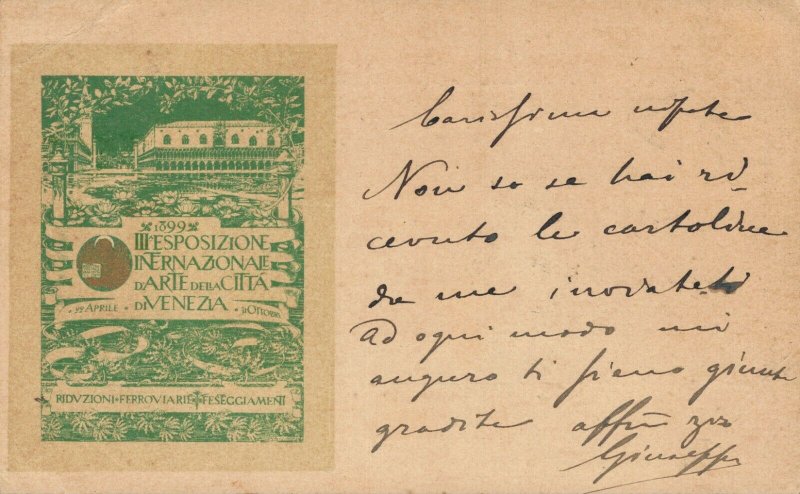 1899
IIIª ESPOSIZIONE
INTERNAZIONALE
D'ARTE DELLA CITTÀ
DI VENEZIA
22 APRILE • 31 OTTOBRE
RIDVZIONI • FERROVIARIE FESTEGGIAMENTI
Carissima nipote
Non so se hai ri-
cevuto le cartoline
da me inviateti
Ad ogni modo mi
auguro ti siano giunte
gradite affmo zio
Giuseppe